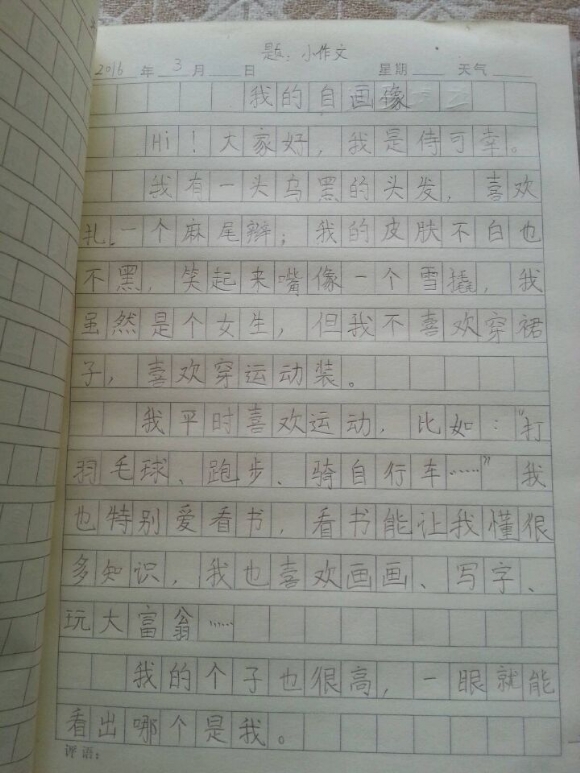 题：小作文
2016 年 3 月 日 星期 天气
我的自画像
Hi！大家好，我是侍可幸。
我有一头乌黑的头发，喜欢
扎一个麻尾辫；我的皮肤不白也
不黑，笑起来嘴像一个雪撬，我
虽然是个女生，但我不喜欢穿裙
子，喜欢穿运动装。
我平时喜欢运动，比如：“打
羽毛球、跑步、骑自行车……”我
也特别爱看书，看书能让我懂很
多知识，我也喜欢画画、写字、
玩大富翁……
我的个子也很高，一眼就能
看出哪个是我。
评语：